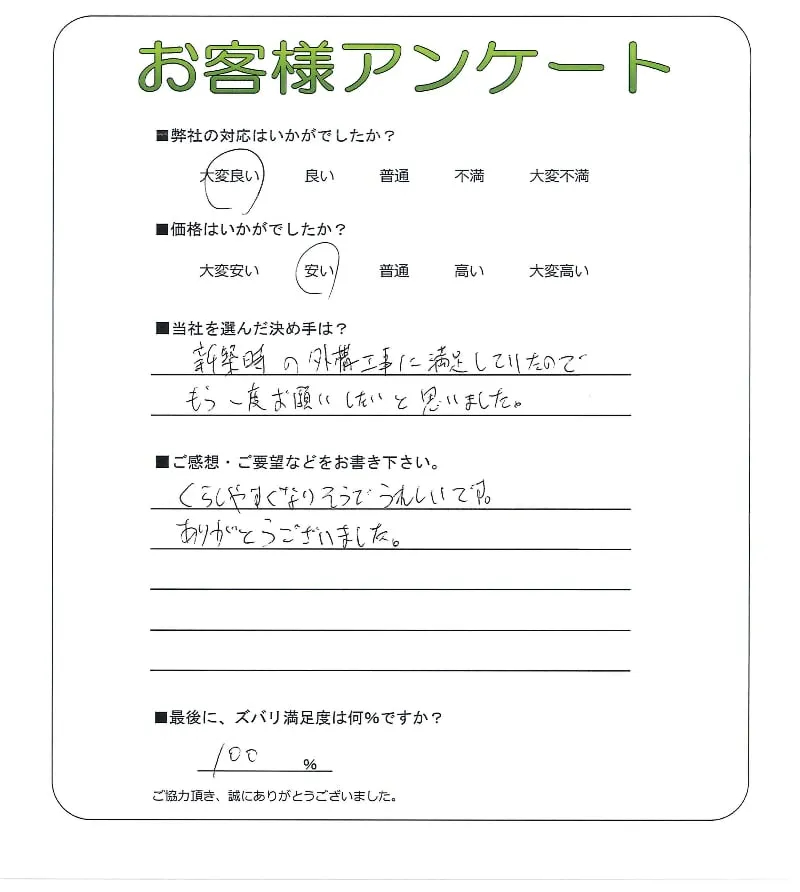 お客様アンケート
■弊社の対応はいかがでしたか？
大変良い 良い 普通 不満 大変不満
■価格はいかがでしたか？
大変安い 安い 普通 高い 大変高い
■当社を選んだ決め手は？
新築時の外構工事に満足していたので
もう一度お願いしたいと思いました。
■ご感想・ご要望などをお書き下さい。
くらしやすくなりそうでうれしいです。
ありがとうございました。
■最後に、ズバリ満足度は何％ですか？
100 %
ご協力頂き、誠にありがとうございました。